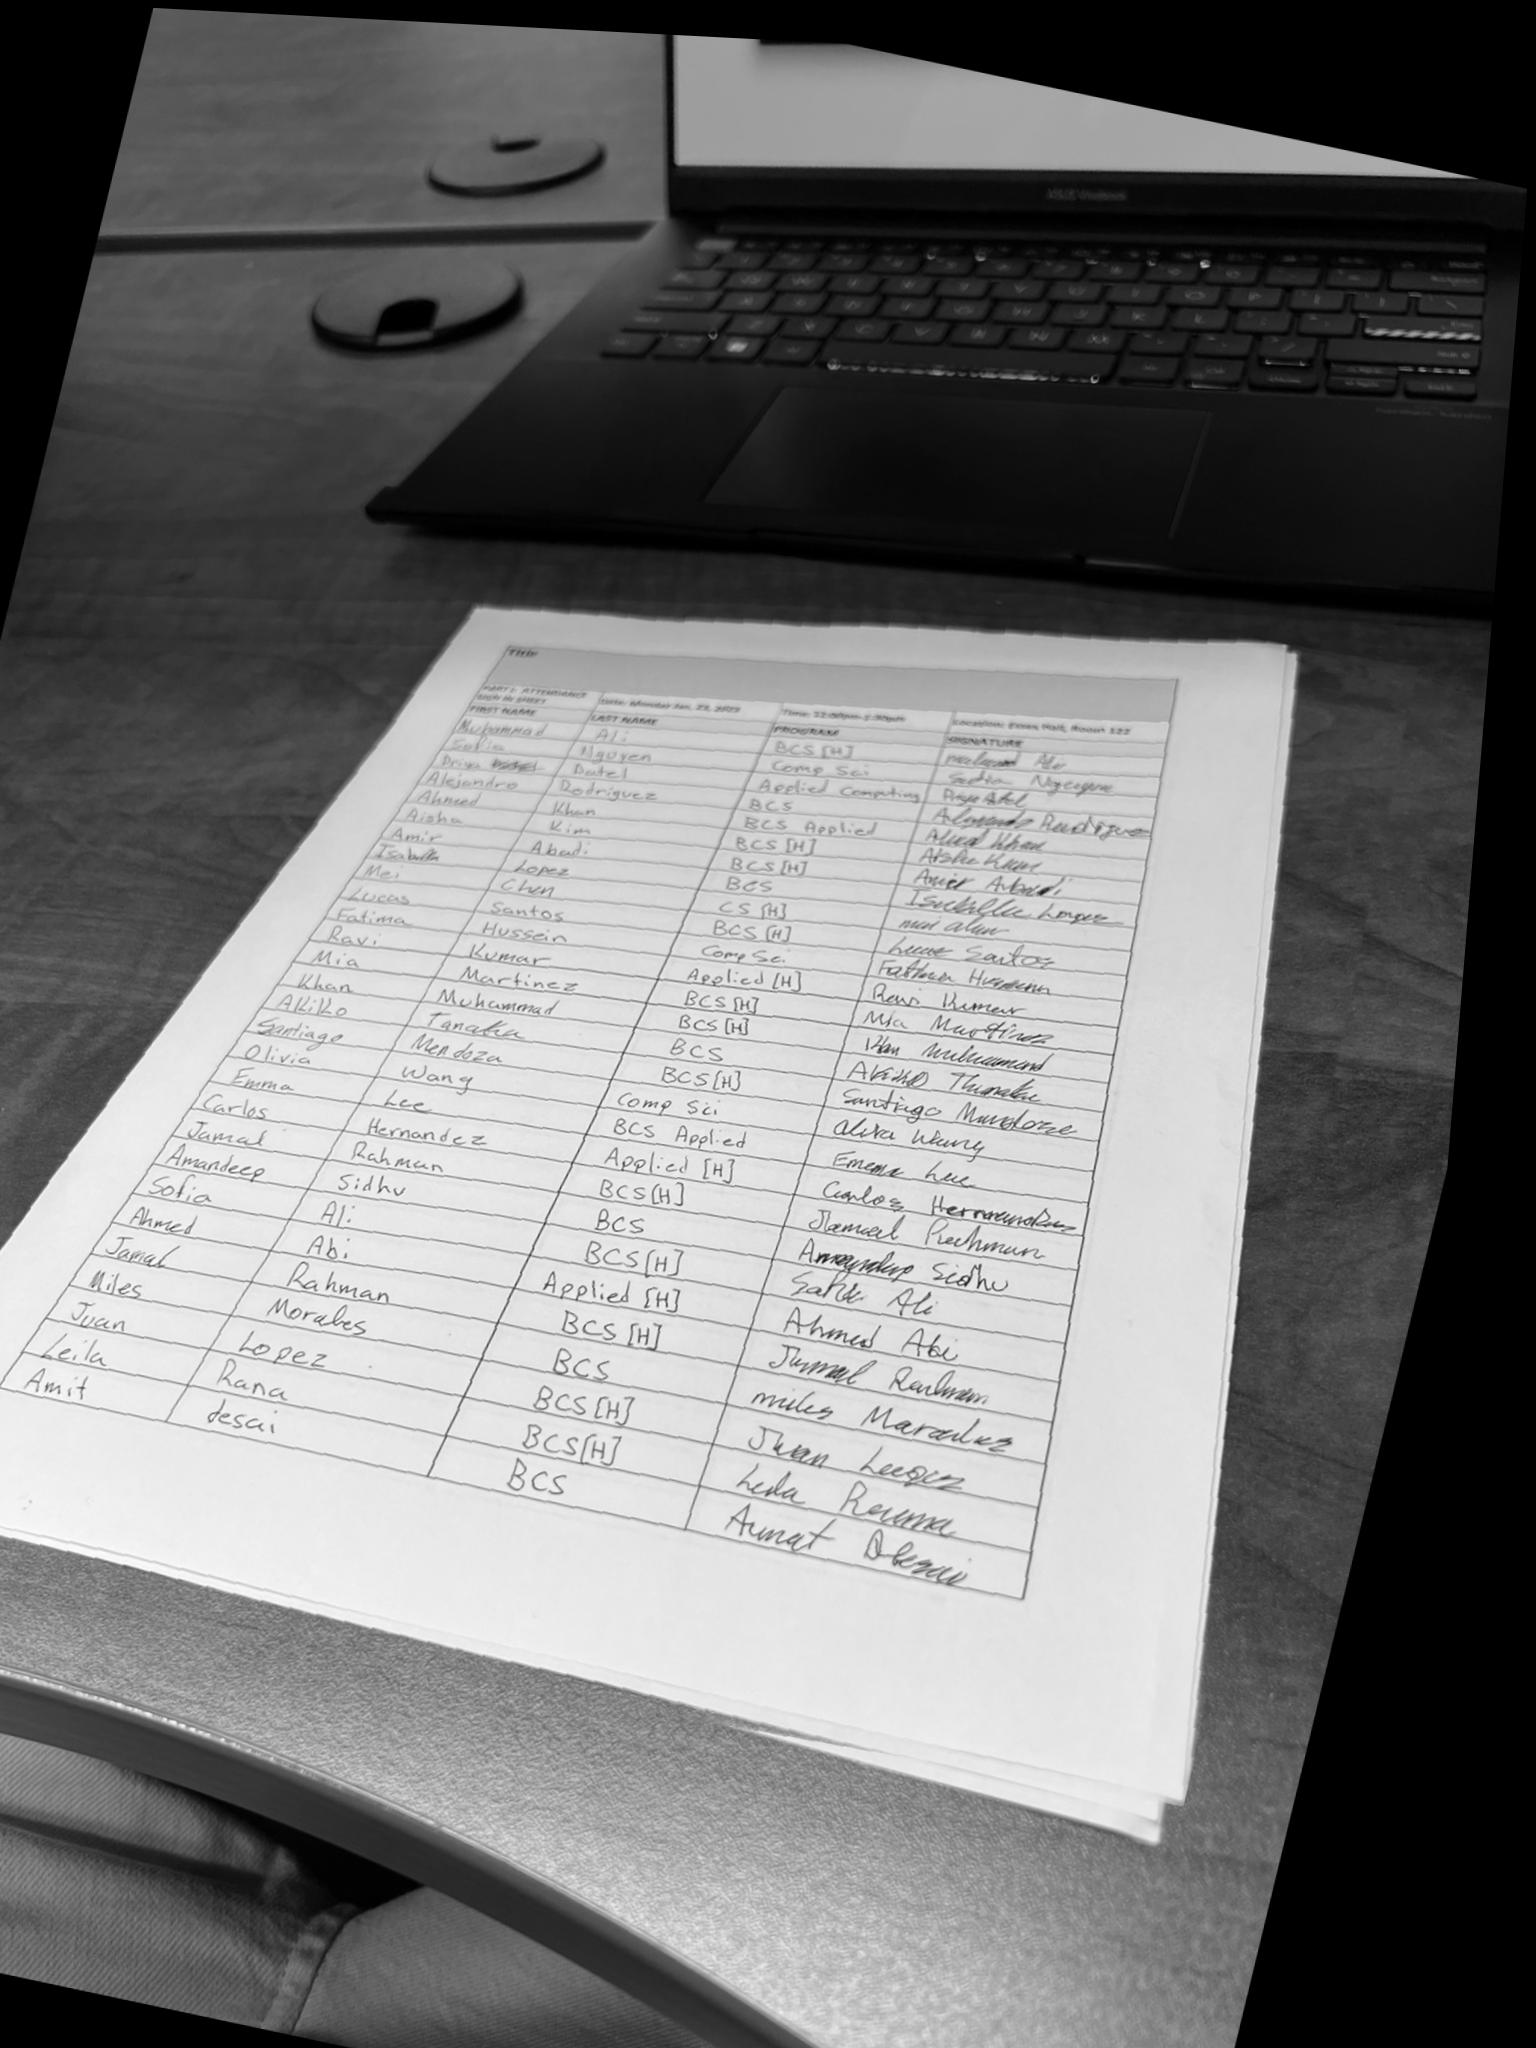 Title
PART I: ATTENDANCE SIGN IN SHEET Date: Monday Jan, 23, 2023 Time: 12:00pm-1:30pm Location: Essex Hall, Room 122
FIRST NAME LAST NAME PROGRAM SIGNATURE
Muhammad Ali BCS [H]
Sofia Nguyen Comp Sci
Priya Patel Applied Computing
Alejandro Rodriguez BCS
Ahmed Khan BCS Applied Ahmed Khan
Aisha Kim BCS [H]
Amir Abadi BCS [H] Amir Abadi
Isabella Lopez BCS Isabella Lopez
Mei Chen CS [H]
Lucas Santos BCS [H] Lucas Santos
Fatima Hussein Comp Sci Fatima Hussein
Ravi Kumar Applied [H] Ravi Kumar
Mia Martinez BCS [H] Mia Martinez
Khan Muhammad BCS [H] Khan Muhammad
AKiKo Tanaka BCS
Santiago Mendoza BCS [H] Santiago Mendoza
Olivia Wang Comp Sci Olivia Wang
Emma Lee BCS Applied Emma Lee
Carlos Hernandez Applied [H] Carlos Hernandez
Jamal Rahman BCS [H] Jamal Rahman
Amandeep Sidhu BCS Amandeep Sidhu
Sofia Ali BCS [H] Ali
Ahmed Abi Applied [H] Ahmed Abi
Jamal Rahman BCS [H] Jamal Rahman
Miles Morales BCS miles
Juan Lopez BCS [H] Juan
Leila Rana BCS [H] Leila
Amit desai BCS